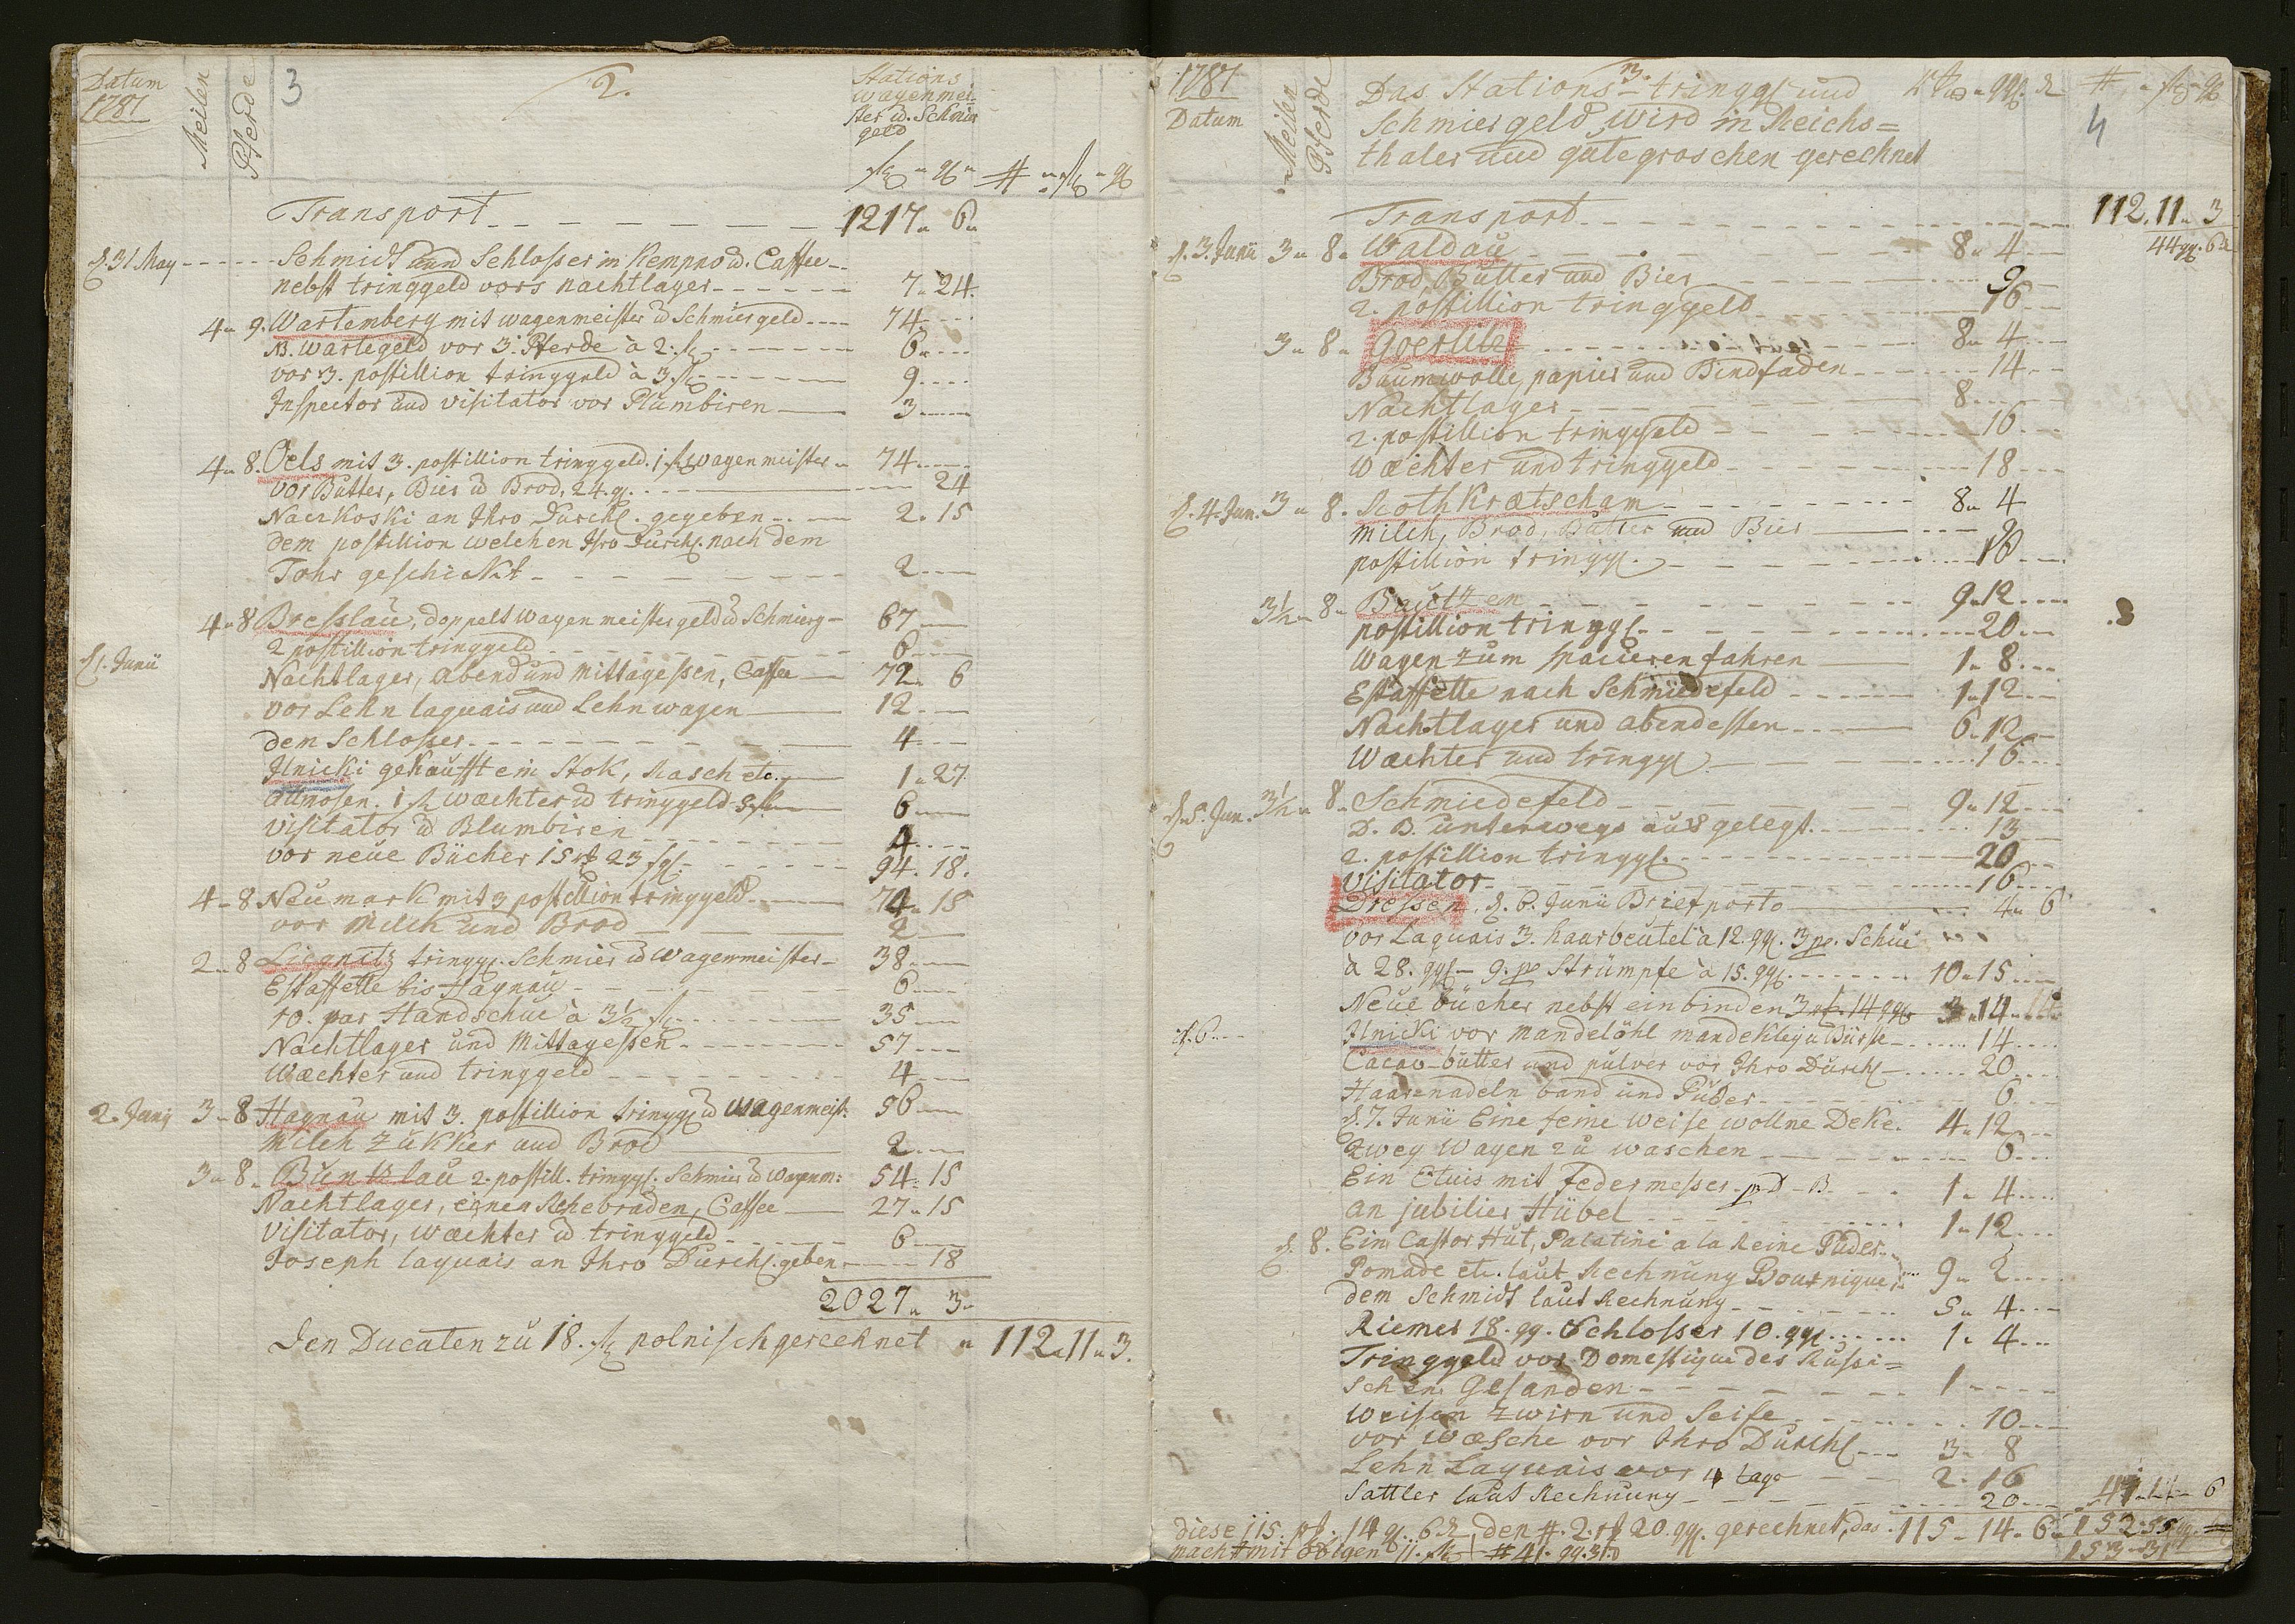 Datum
1787
Meilen
Pferde
3
2.
Stations
Wagenmei-
ster u. Schmir
geld
Transport 1217 6
d. 31 May Schmidt und Schlosser in Kempno u. Caffee
nebst tringgeld vors nachtlager 7 24.
4 9. Wartemberg mit wagenmeister u Schmiergeld 74
NB. Wartegeld vor 3. Pferde à 2. fl 6
vor 3. postillion tringgeld à 3. fl 9
Inspector und visitator vor Plumbiren 3
4 8. Oels mit 3. postillion tringgeld. 1 fl wagenmeister 74
vor Butter, Bier u Brod, 24. g. 24
Nackoski an Ihro Durchl. gegeben 2. 15
dem postillion welchen Ihro Durchl. nach dem
Tohr geschickt 2
4 8 Bresslau, doppelt wagenmeistergeld u Schmierg 67
2 postillion tringgeld 6
d. 1. Junii Nachtlager, abend und Mittagessen, Caffee 72 6
vor Lehn laquais und Lehn wagen 12
dem Schlosser 4
Ilnicki gekaufft ein Stok, Rasch etc. 1 27
Allmosen. 1 fl waechter u tringgeld 5 fl 6
Visitator u Blumbiren 4
vor neue Bücher 15 rt 23 sgl. 94. 18.
4 8 Neumark mit 3 postillion tringgeld 74 15
vor Milch und Brod 2
2 8 Liegnitz tringgl. Schmier u wagenmeister 38
Estaffette bis Haynau 6
10. par Handschue à 3½ fl 35
Nachtlager und Mittagessen 57
Waechter und tringgeld 4
2. Junij 3 8 Haynau mit 3. postillion tringgl u Wagenmeist: 56
Milch Zukker und Brod 2
3 8. Buntzlau 2. postill. tringgl. Schmier u wagenm: 54 15
Nachtlager, einen Rehebraden, Caffee 27 15
Visitator, waechter u tringgeld 6
Joseph laquais an Ihro Durchl. geben 18
2027 3
Den Ducaten zu 18. fl polnisch gerechnet 112 11 3.
1787
Datum
Meilen
Pferde
3.
Das Stations-tringgl und
Schmiergeld wird in Reichs=
thaler und gutegroschen gerechnet
4
Transport 112. 11 3
d. 3. Junii 3 8 Waldau 8 4 44 gg. 6
Brod, Butter und Bier 9
2. postillion tringgeld 16
3 8 Goerlitz 8 4
Baumwolle, papier und Bindfaden 14
Nachtlager 8
2. postillion tringgeld 16
Waechter und tringgeld 18
d. 4. Jun. 3 8. Rothkraetscham 8 4
Milch, Brod, Butter und Bier 9
postillion tringgl. 16
3½ 8 Bautzen 9 12
postillion tringgl. 20
Wagen zum spacierenfahren 1 8
Estaffette nach Schmiedefeld 1 12
Nachtlager und abendessen 6. 12
Waechter und tringgl 16
d. 5. Jun. 3½ 8 Schmiedefeld 9 12
D. B. unterwegs ausgelegt 13
2. postillion tringgl. 20
Visitator 16
Dressen, d. 6. Junii Briefporto 4 6
vor Laquais 3. haarbeutel à 12. ggl. 3 pr. Schue
à 28. ggl 9. pr Strümpfe à 15. ggl 10 15
Neue bücher nebst einbinden 3 rt. 14 ggr 3 14
d. 6 Ilnicki vor mandelöhl mandekley u Bürste 14
Cacao-butter und pulver vor Ihro Durchl 20
Haarenadeln band und Puder 6
d. 7. Junii Eine feine Weise wollne Deke. 4 12
Zwey Wagen zu waschen 6
Ein Etuis mit Federmesser p. D. B. 1 4
an jubilier Hübel 1 12
d. 8. Ein Castor Hut, Palatine a la Reine Puder
Pomade etc. laut Rechnung Bournique 9 2
dem Schmidt laut Rechnung 5 4
Riemer 18. gg. Schlosser 10. ggl 1. 4
Tringgeld vor Domestique des Russi=
schen Gesanden 1
Weisen Zwirn und Seife 10
vor Waesche vor Ihro Durchl 3 8
Lehn Laquais vor 4 tage 2. 16
Sattler laut Rechnung 20
diese 115. rt. 14 g. 6 d, den #. 2. rt 20. gg. gerechnet, das 115 14 6
macht mit obigen 11. fl # 41. gg. 31.